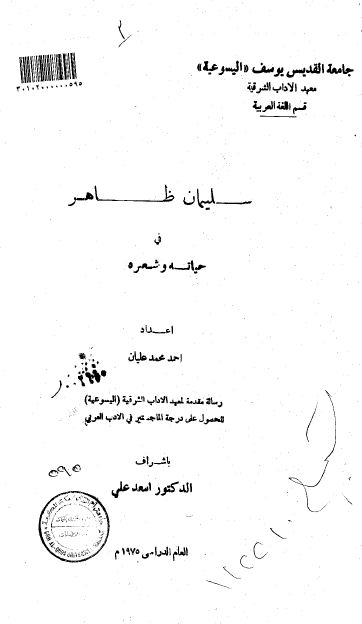 ٢
جامعة القديس يوسف «اليسوعية»
معهد الآداب الشرقية
قسم اللغة العربية
٣٠١٠٢٠٠٠٠٠٠٥٩٥
سليمان ظاهر
في
حياته وشعره
اعداد
احمد محمد عليان
رسالة مقدمة لمعهد الآداب الشرقية (اليسوعية)
للحصول على درجة الماجستير في الادب العربي
باشراف
٥٩٥
الدكتور اسعد علي
العام الدراسى ١٩٧٥ م